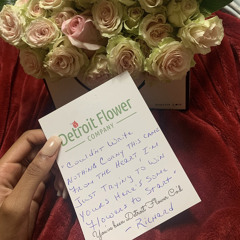 Detroit Flower
COMPANY
I Couldn't Wait
Nothing Corny This Came
From the Heart I'm
Just Trying to Win
Yours Here's Some
Flowers to Start.
You've been Detroit Flower Co'd
- Richard